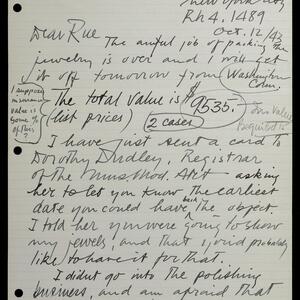 New York City
Rh 4, 1489
Oct. 12/43
Dear Rue
The awful job of packing the
jewelry is over and I will get
it off tomorrow from Washington
Conn.
The total value is $9535.
(list prices) 2 cases
I suppose
insurance
value is
some %
of this?
I have just sent a card to
Dorothy Dudley, Registrar
of the Mus. Mod. Art asking
her to let you know the earliest
date you could have back the object.
I told her you were going to show
my jewels, and that you'd probably
like to have it for that.
I didn't go into the polishing
business, and am afraid that